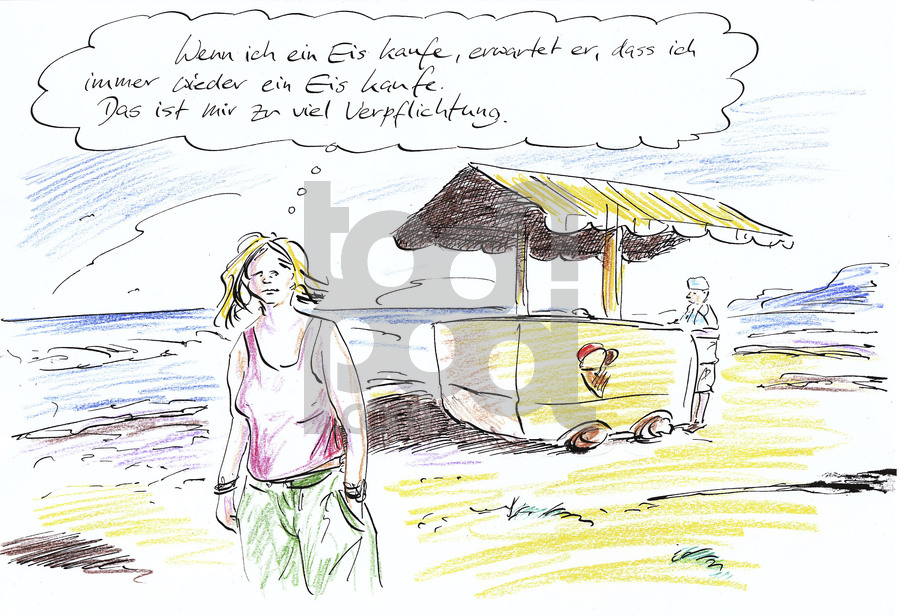 Wenn ich ein Eis kaufe, erwartet er, dass ich
immer wieder ein Eis kaufe.
Das ist mir zu viel Verpflichtung.